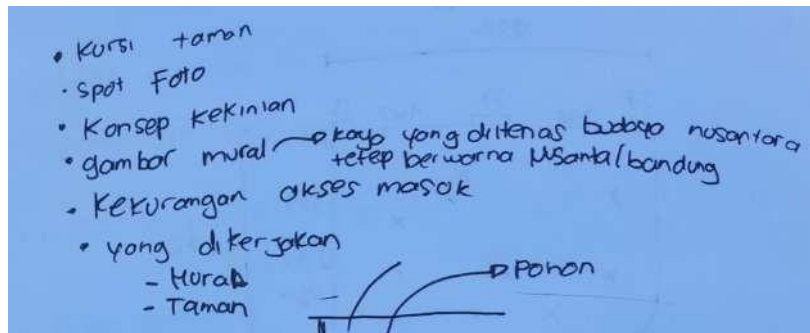 • Kursi taman
• Spot Foto
• Konsep kekinian
• gambar mural → kayo yang ditenas budaya nusantara
tetep berwarna Nusanta/bandung
• Kekurangan akses masok
• yang dikerjakan
- Mural
- Taman
Pohon